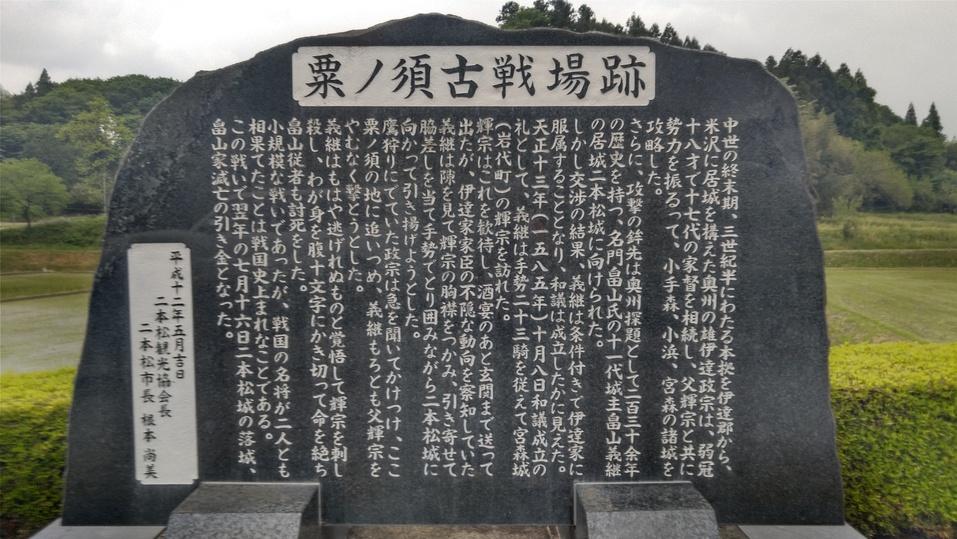 粟ノ須古戦場跡
中世の終末期、三世紀半にわたる本拠を伊達郡から、
米沢に居城を構えた奥州の雄伊達政宗は、弱冠
十八才で十七代の家督を相続し、父輝宗と共に
勢力を振るって、小手森、小浜、宮森の諸城を
攻略した。
さらに、攻撃の鉾先は奥州探題として二百三十余年
の歴史を持つ、名門畠山氏の十一代城主畠山義継
の居城二本松城に向けられた。
しかし交渉の結果、義継は条件付きで伊達家に
服属することとなり、和議は成立したかに見えた。
天正十三年(一五八五年)十月八日和議成立の
礼として、義継は手勢二十三騎を従えて宮森城
(岩代町)の輝宗を訪れた。
輝宗はこれを歓待し、酒宴のあと玄関まで送って
出たが、伊達家家臣の不隠な動向を察知していた
義継は隙を見て輝宗の胸襟をつかみ、引き寄せて
脇差しを当て手勢でとり囲みながら二本松城に
向かって引き揚げようとした。
鷹狩りにでていた政宗は急を聞いてかけつけ、ここ
粟ノ須の地に追いつめ、義継もろとも父輝宗を
やむなく撃とうとした。
義継はもはや逃げれぬものと覚悟して輝宗を刺し
殺し、わが身を腹十文字にかき切って命を絶ち
畠山従者も討死をした。
小規模な戦いであったが、戦国の名将が二人とも
相果てたことは戦国史上まれなことである。
この戦いで翌年の七月十六日二本松城の落城、
畠山家滅亡の引き金となった。
平成十二年五月吉日
二本松観光協会長
二本松市長 根本尚美